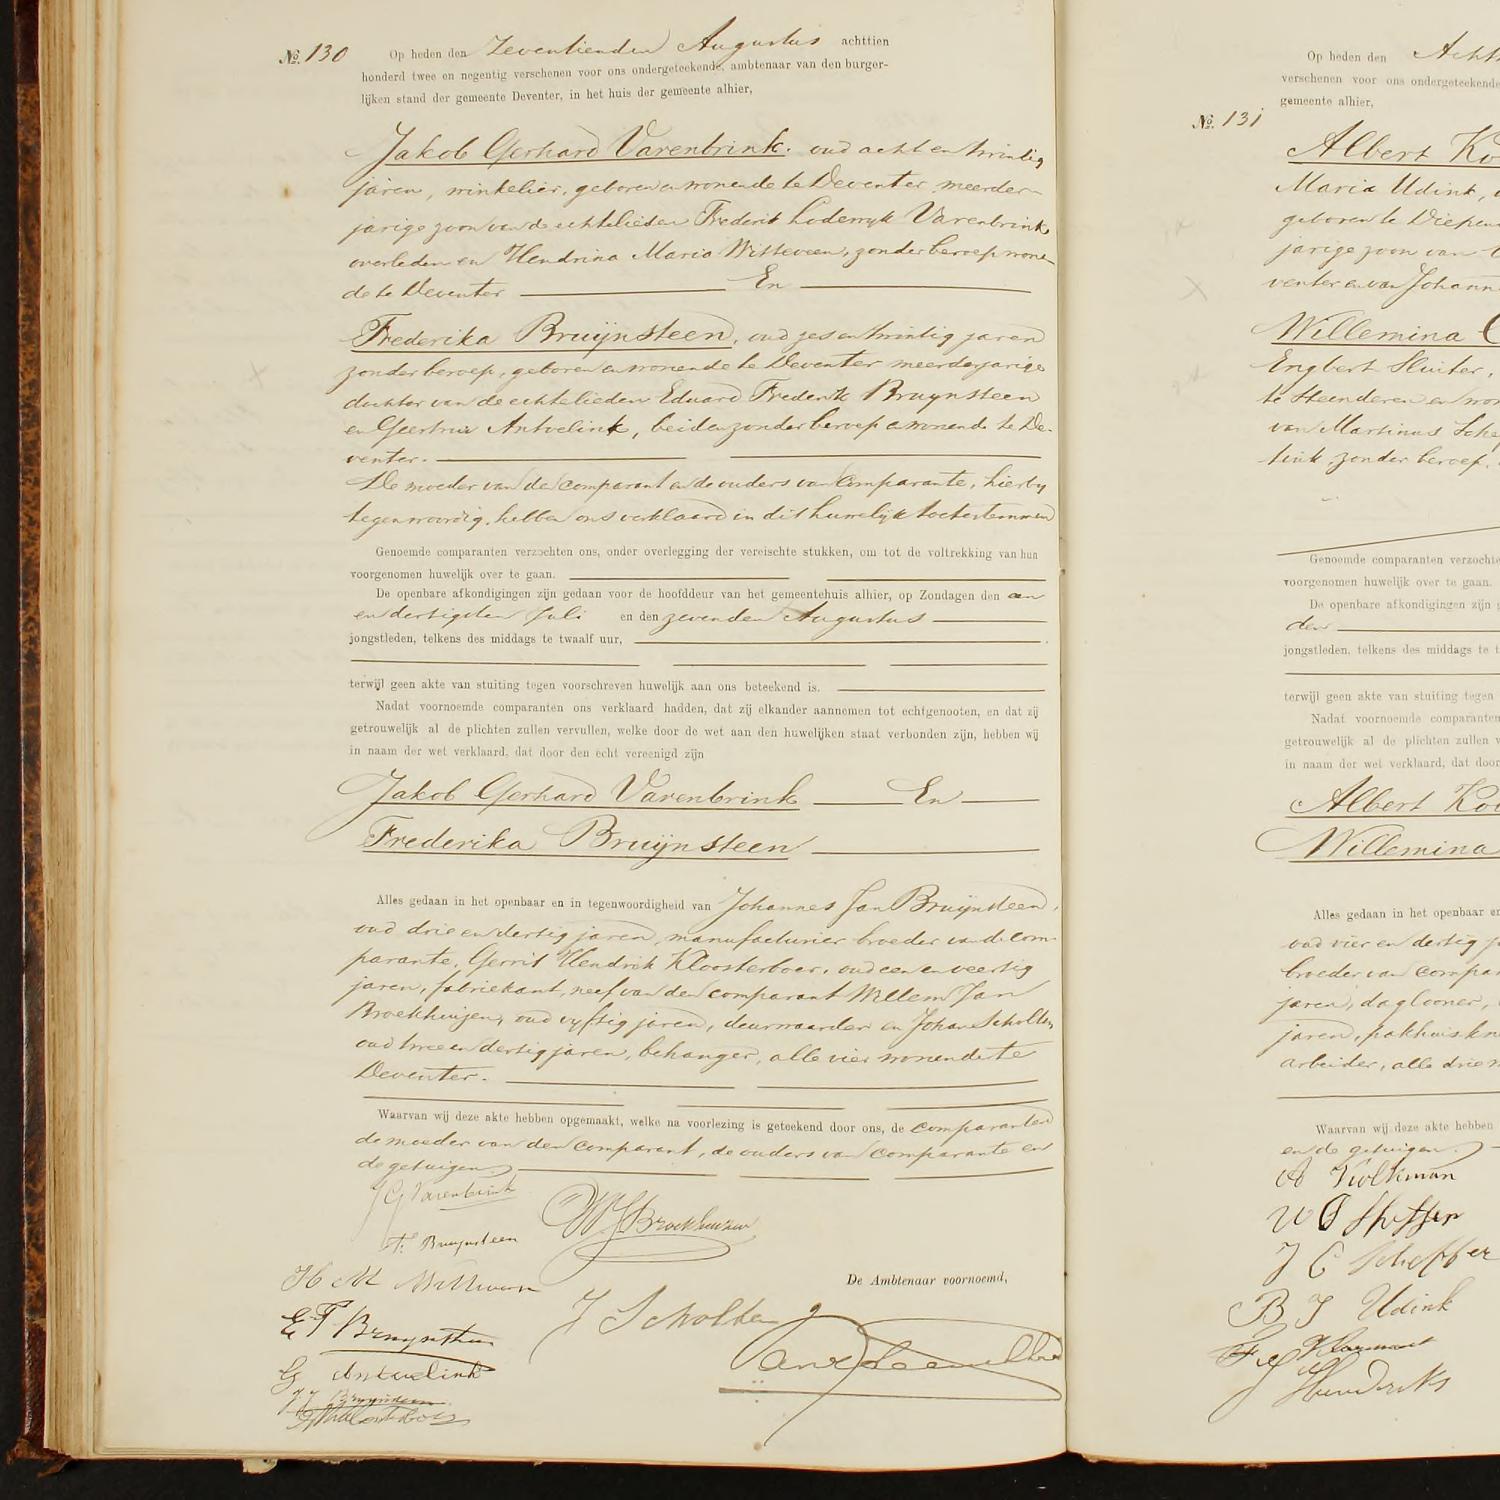 №. 130 Op heden den Zeventienden Augustus achttien
honderd twee en negentig verschenen voor ons ondergeteekende, ambtenaar van den burger-
lijken stand der gemeente Deventer, in het huis der gemeente alhier,
Jakob Gerhard Varenbrink. oud acht en twintig
jaren, winkelier, geboren en wonende te Deventer meerder-
jarige zoon van de echtelieden Frederik Lodewyk Varenbrink
overleden en Hendrina Maria Witteveen, zonder beroep wonen-
de te Deventer En
Frederika Bruijnsteen, oud zes en twintig jaren
zonder beroep, geboren en wonende te Deventer meerderjarige
dochter van de echtelieden Eduard Frederik Bruynsteen
en Geertrui Antvelink, beiden zonder beroep en wonende te De-
venter.
De moeder van den comparant en de ouders van comparante, hierby
tegenwoordig, hebben ons verklaard in dit huwelijk toetestemmen
Genoemde comparanten verzochten ons, onder overlegging der vereischte stukken, om tot de voltrekking van hun
voorgenomen huwelijk over te gaan.
De openbare afkondigingen zijn gedaan voor de hoofddeur van het gemeentehuis alhier, op Zondagen den een
en dertigsten Juli en den zevenden Augustus
jongstleden, telkens des middags te twaalf uur,
terwijl geen akte van stuiting tegen voorschreven huwelijk aan ons beteekend is.
Nadat voornoemde comparanten ons verklaard hadden, dat zij elkander aannemen tot echtgenooten, en dat zij
getrouwelijk al de plichten zullen vervullen, welke door de wet aan den huwelijken staat verbonden zijn, hebben wij
in naam der wet verklaard, dat door den echt vereenigd zijn
Jakob Gerhard Varenbrink En
Frederika Bruijnsteen
Alles gedaan in het openbaar en in tegenwoordigheid van Johannes Jan Bruijnsteen,
oud drie en dertig jaren, manufacturier broeder van de com-
parante, Gerrit Hendrik Kloosterboer, oud een en veertig
jaren, fabriekant, neef van den comparant Willem Jan
Broekhuijzen, oud vyftig jaren, deurwaarder en Johan Scholten
oud twee en dertig jaren, behanger, alle vier wonende te
Deventer.
Waarvan wij deze akte hebben opgemaakt, welke na voorlezing is geteekend door ons, de comparanten
de moeder van den comparant, de ouders van comparante en
de getuigen
J G Varenbrink
F. Bruynsteen
WJ Broekhuizen
H M Witteveen
De Ambtenaar voornoemd,
E F Bruynsteen
J Scholten
G Antvelink
J J Bruynsteen
Op heden den Acht
verschenen voor ons ondergeteekende
gemeente alhier,
№. 131
Albert Ko
Maria Udink,
geboren te Diepen
jarige zoon van
venter en van Johann
Willemina
Engbert Sluiter,
te Steenderen en won
van Martinus Sche
tink zonder beroep,
Genoemde comparanten verzochte
voorgenomen huwelijk over te gaan.
De openbare afkondigingen zijn
den
jongstleden, telkens des middags te t
terwijl geen akte van stuiting tegen
Nadat voornoemde comparanten
getrouwelijk al de plichten zullen v
in naam der wet verklaard, dat door
Albert Ko
Willemina
Alles gedaan in het openbaar en
oud vier en dertig j
broeder van compar
jaren, daglooner,
jaren, pakhuiskn
arbeider, alle drie
Waarvan wij deze akte hebben
en de getuigen.
J C Scheffer
B J Udink
Hendriks